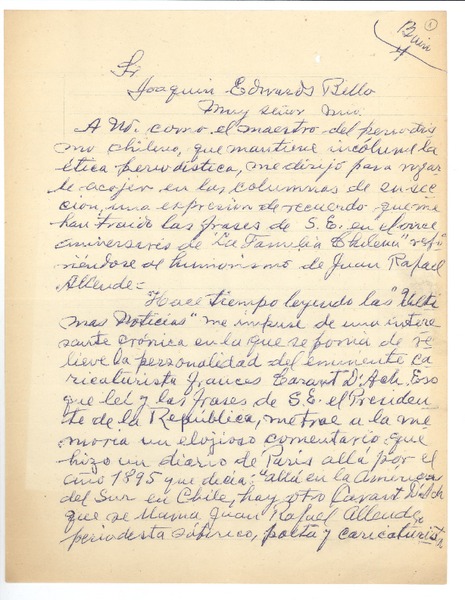 1
Sr
Joaquin Edwards Bello
Muy señor mio.
A Ud. como el maestro del periodis
mo chileno, que mantiene incólume la
ética periodistica, me dirijo para rogar
le acojer en las columnas de su sec
cion, una expresion de recuerdo que me
han traido las frases de S.E. en el
aniversario de "La Familia Chilena" refi
riéndose al humorismo de Juan Rafael
Allende=
"Hace tiempo leyendo las "Ulti
mas Noticias" me impuse de una intere
sante crónica en la que se ponia de re
lieve la personalidad del eminente ca
ricaturista frances Carant D'Ach. Eso
que leí y las frases de S.E. el Presiden
te de la República, me trae a la me
moria un elojioso comentario que
hizo un diario de Paris allá por el
año 1895 que decia: "allá en la America
del Sur en Chile, hay otro Carant D'Ach
que se llama Juan Rafael Allende,
periodista satirico, poeta y caricaturista